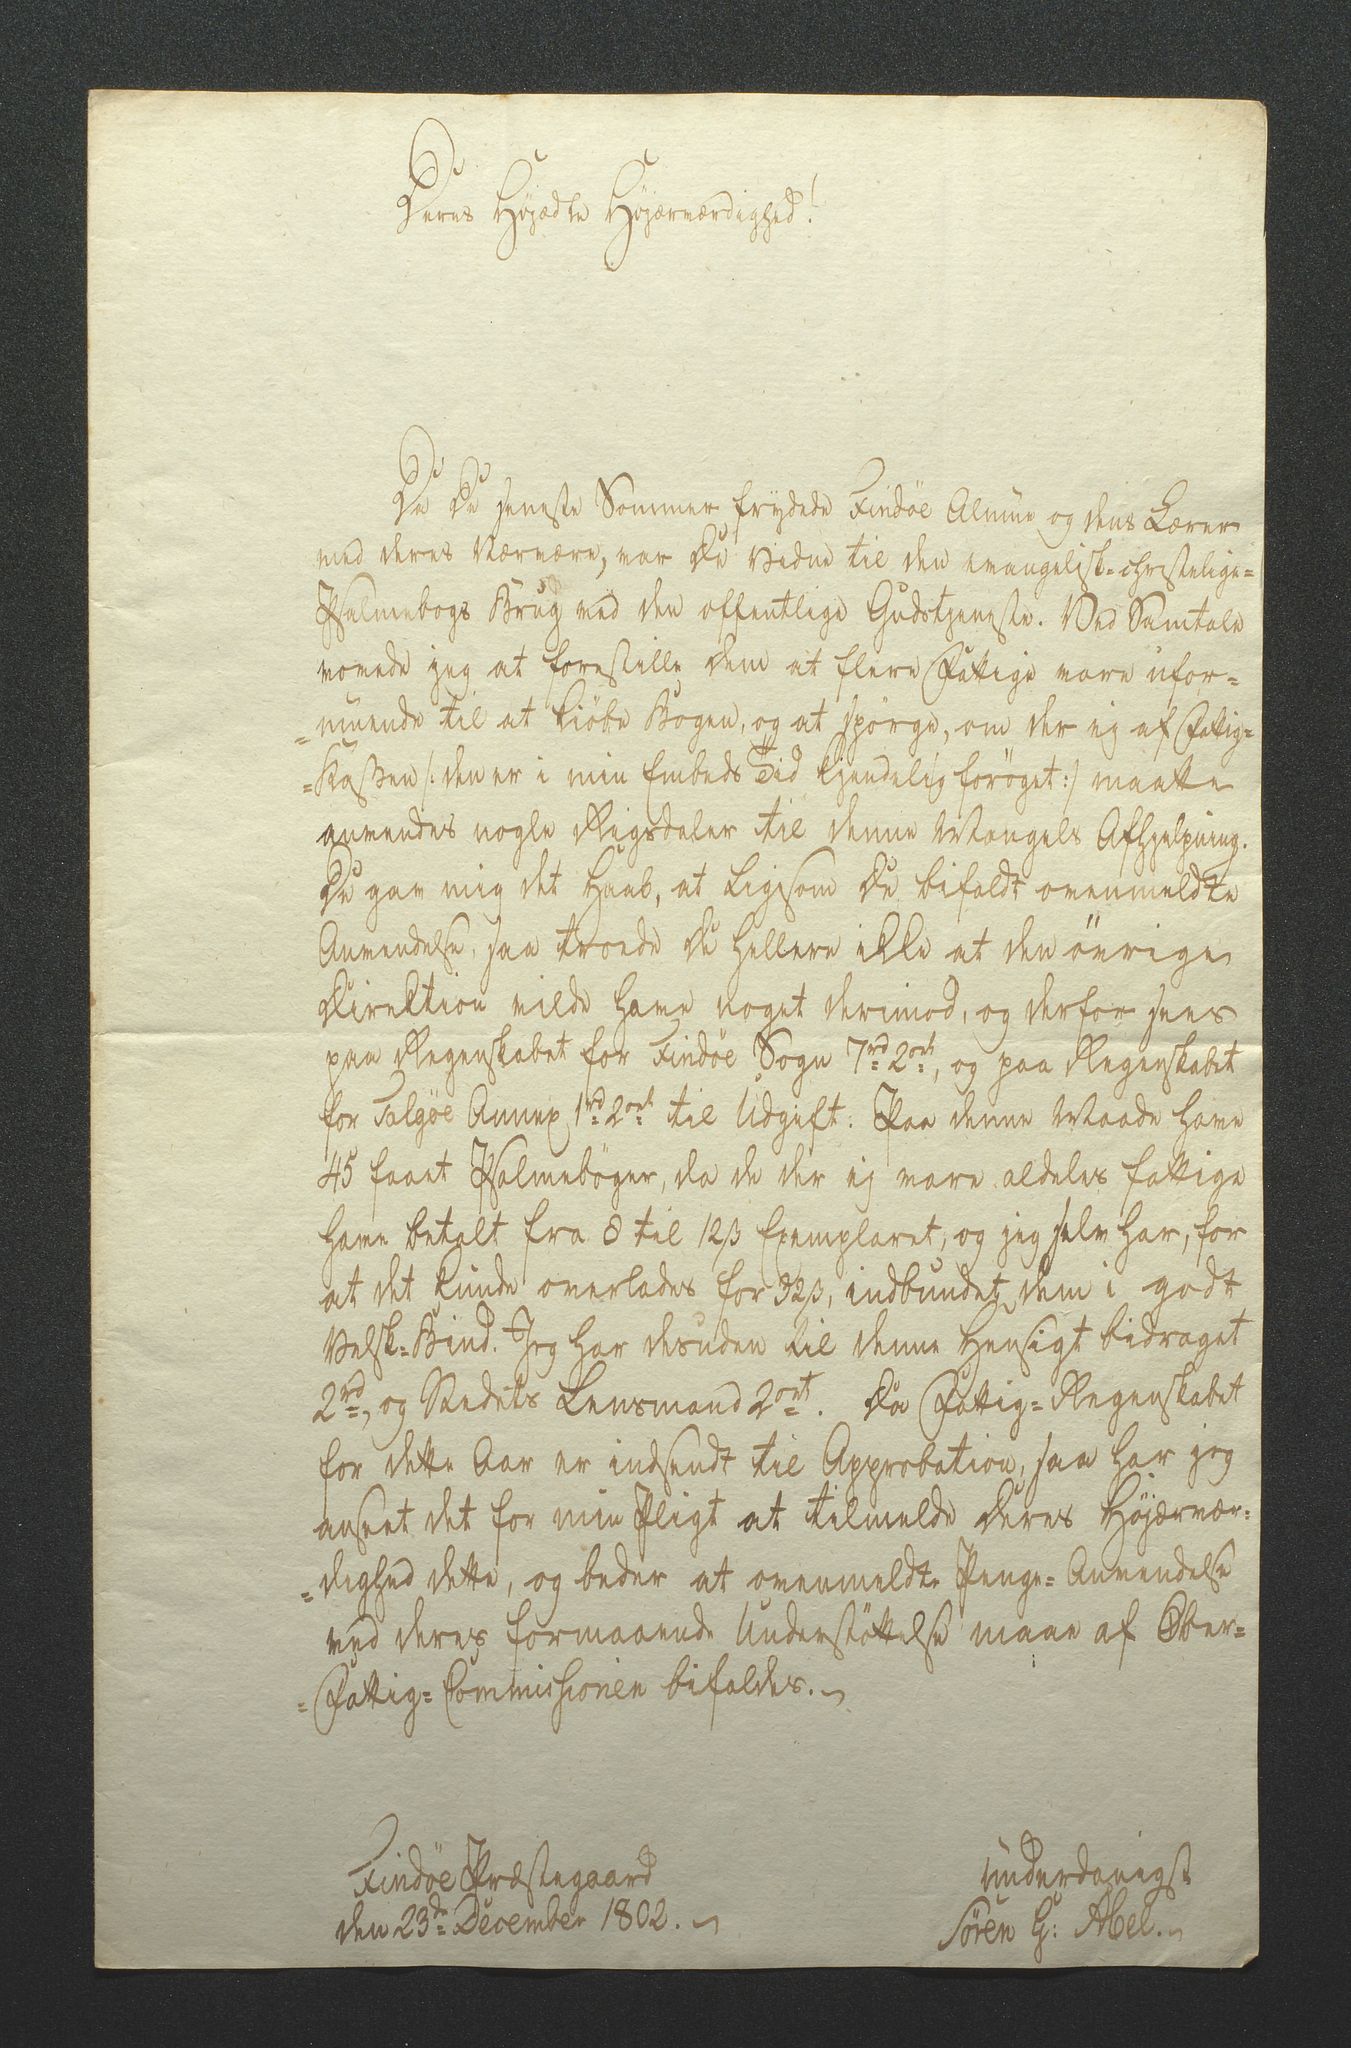 Deres Højædle Højærværdighed!
Da De seneste Sommer frydede Findöe Almue og dens Lærer
med deres Nærvære, var De Vidne til den evangelisk-christelige-
Psalmebogs Brug ved den offentlige Gudstjeneste. Ved Samtale
vovede jeg at forestille Dem at flere Fattige vare ufor-
=muende til at kiöbe Bogen, og at spörge, om der ej af Fattig-
=Kassen /: den er i min Embeds Tid kjendelig foröget :/ maatte
anvendes nogle Rigsdaler til denne Mangels Afhjelpning.
De gav mig det Haab, at ligesom De bifaldt ovenmeldte
Anvendelse, saa troede De hellere ikke at den övrige
Direktion vilde have noget derimod, og derfor sees
paa Regenskabet for Findöe Sogn 7rd 2ort, og paa Regenskabet
for Talgöe Annex 1rd 2ort til Udgift. Paa denne Maade have
45 faaet Psalmeböger, da de der ej vare aldeles fattige
have betalt fra 8 til 12ß Exemplaret, og jeg selv har, for
at det kunde overlades for 32ß, indbundet dem i godt
Velsk-Bind. Jeg har desuden til denne Hensigt bidraget
2rd, og Stedets Lensmand 2ort. Da Fattig-Regenskabet
for dette Aar er indsendt til Approbation, saa har jeg
anseet det for min Pligt at tilmelde Deres Höjærvær-
=dighed dette, og beder at ovenmeldte Penge-Anvendelse
ved deres formaaende Understöttelse maae af Ober-
=Fattig-Commissionen bifaldes.
Findöe Præstegaard
den 23de December 1802.
underdanigst
Sören G: Abel.